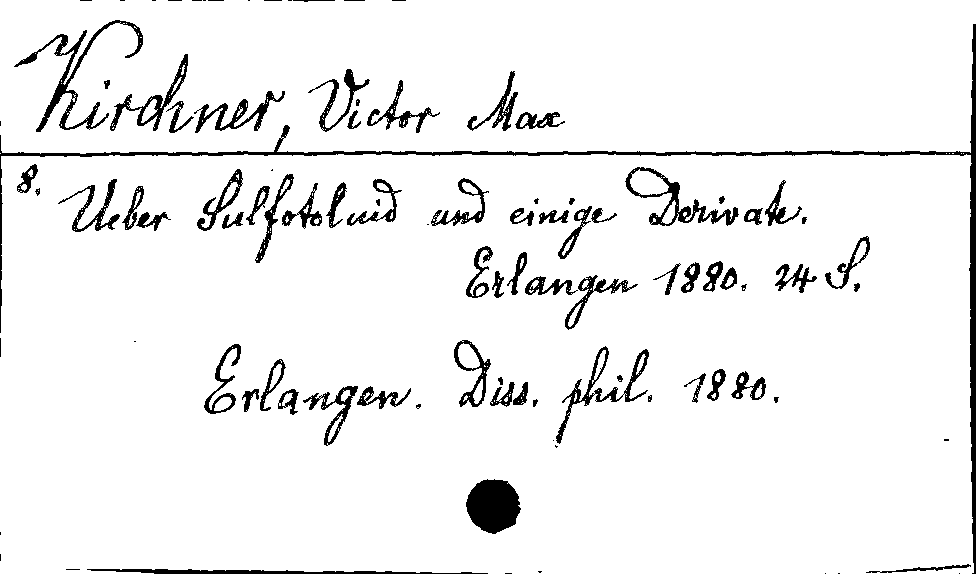 Kirchner, Victor Max
8.
Ueber Sulfotoluid und einige Derivate.
Erlangen 1880. 24 S.
Erlangen. Diss. phil. 1880.